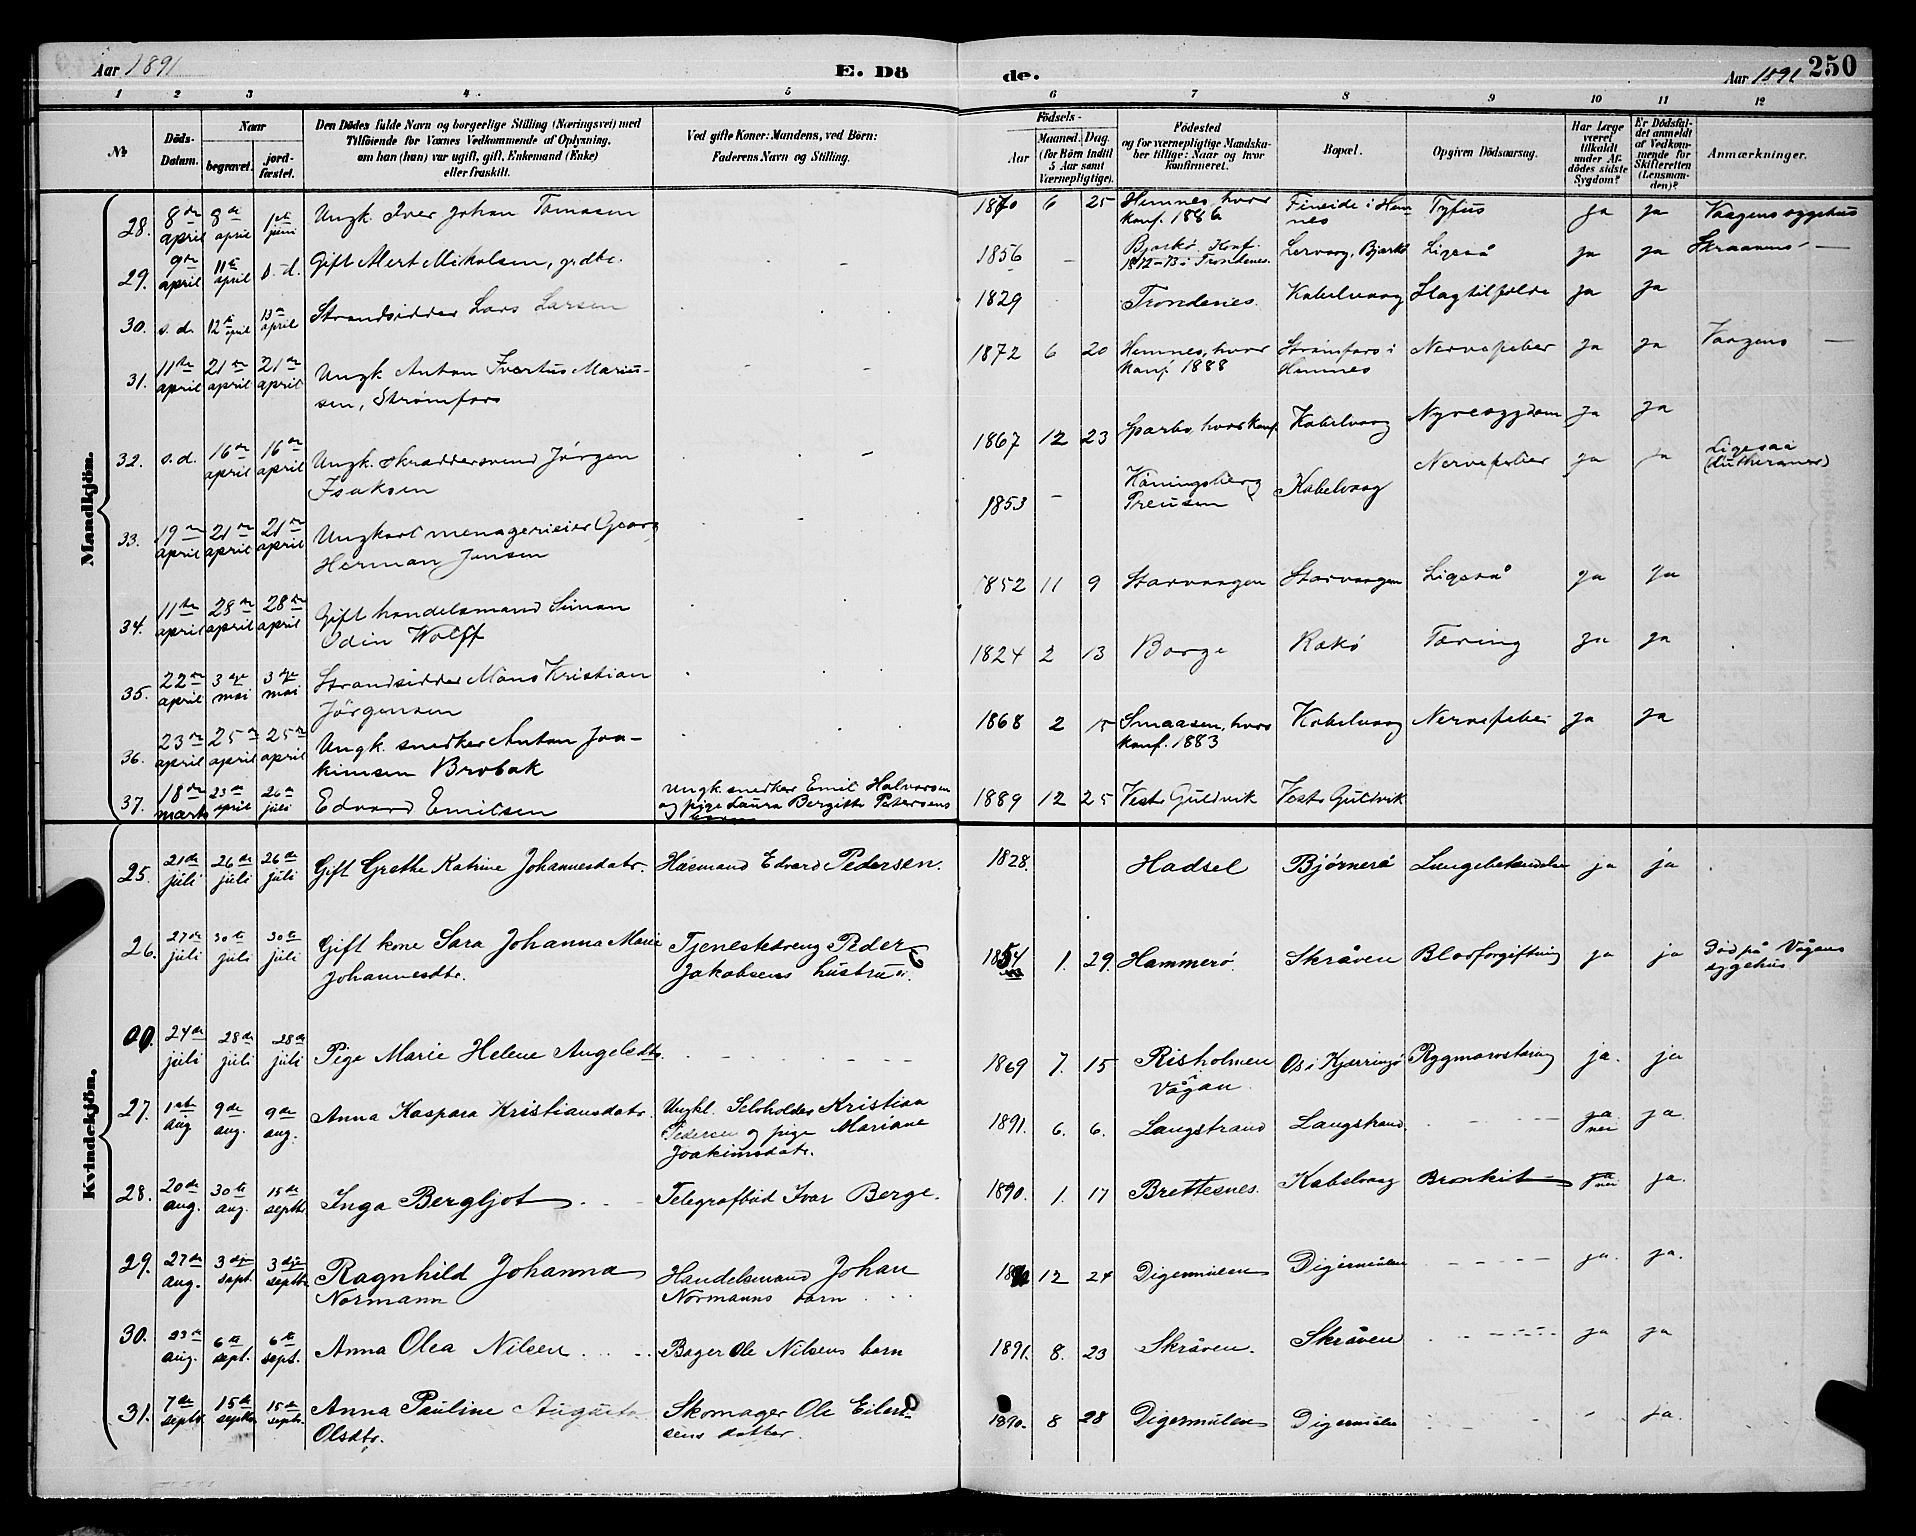 Aar 1891
E. Dö
de.
Aar 1891
250
1 2 3 4. 5 6 7 8 9 10 11 12
№
Döds-
Datum.
Naar
begravet.
jord-
fæstet.
Den Dödes fulde Navn og borgerlige Stilling (Næringsvei) med
Tilföiende for Voxnes Vedkommende af Oplysning,
om han (hun) var ugift, gift, Enkemand (Enke)
eller fraskilt.
Ved gifte Koner: Mandens, ved Börn:
Faderens Navn og Stilling.
Födsels-
Aar
Maaned. Dag.
(for Börn indtil
5 Aar samt
Værnepligtige).
Födested
og for værnepligtige Mandska-
ber tillige: Naar og hvor
konfirmeret.
Bopæl.
Opgiven Dödsaarsag.
Har Læge
været
tilkaldt
under Af-
dödes sidste
Sygdom?
Er Dödsfal-
det anmeldt
af Vedkom-
mende for
Skifteretten
(Lensman-
den)?
Anmærkninger.
Mandkjön.
28. 8de april 8de april 1ste juni Ungk. Iver Johan Tomasen 1870 6 25 Hemnes, hvor konf. 1886 Fineide i Hemnes Tyfus ja ja Vaagens sygehus
29. 9de april 11te april s. d. Gift Mert Mikalsen, grdbr. 1856 - Bjarkø. Konf. 1872-73 i Trondenes. Lervaag, Bjarkø Ligeså ja ja Skraavens -
30. s. d. 12te april 13de april Strandsidder Lars Larsen 1829 Trondenes. Kabelvaag Slagtilfælde ja ja
31. 11te april 21de april 21de april Ungk. Anton Ivertus Marius-
sen, Strømfors 1872 6 20 Hemnes, hvor konf. 1888 Strømfors i Hemnes Nervefeber ja ja Vaagens -
32. s. d. 16de april 16de april Ungk. Skræddersvend Jørgen
Isaksen 1867 12 23 Sparbo, hvor konf. Kabelvaag Nyresygdom ja ja
33. 19de april 21de april 21de april Ungkarl menagerieier Georg
Herman Jansen 1853 - Köningsberg Preusen Kabelvaag Nervefeber ja ja Ligesaa (Lutheraner)
34. 11te april 28de april 28de april Gift handelsmand Simon
Odin Wolff 1852 11 9 Storvaagen Storvaagen Ligeså ja ja
35. 22de april 3dje mai 3dje mai Strandsidder Mons Kristian
Jørgensen 1824 2 13 Borge Rakø Tæring ja ja
36. 23de april 25de april 25de april Ungk. snedker Anton Joa-
kimsen Brobak 1868 2 15 Smaasen, hvor konf. 1883 Kabelvaag Nervefeber ja ja
37. 18de marts 23de april 26de juli Edvard Emilsen Ungk. snedker Emil Halvorsen
og pige Laura Bergitte Petersens
barn 1889 12 25 Vestr Guldvik Vestr Guldvik
Kvindekjön.
25. 21de juli 26de juli 26de juli Gift Grethe Katrine Johannesdatr. Husmand Edvard Pedersen. 1828. Hadsel Bjørnerø Lungebetændelse ja ja
26. 27de juli 30te juli 30te juli Gift kone Sara Johanna Marie
Johannesdtr. Tjenestedreng Peder
Jakobsens hustru 1854 1. 29. Hammerø. Skråven Blodforgiftning ja ja Død på Vågans
sygehus
00. 24de juli 28de juli 28de juli Pige Marie Helene Angeledtr. - - - 1869 7. 15 Risholmen
i Vågan. Os i Kjerringø Rygmarvstæring ja. ja
27. 1ste aug 9de aug. 9de aug. Anna Kaspara Kristiansdatr. Ungkl. Selvholder Kristian
Pedersen og pige Mariane
Joakimsdatr. 1891. 6. 6. Langstrand Langstrand. - - - ja nei ja.
28. 20de aug. 30te aug. 15de septbr Inga Bergljot - - Telegrafbud Ivar Berge. 1890. 1. 17 Brettesnes. Kabelvaag Bronkit ja nei ja.
29. 27de aug. 3dje sept. 3dje septbr. Ragnhild Johanna
Normann Handelsmand Johan
Normanns barn 12 24 Digermulen Digermulen - - - ja. ja.
30. 23de aug. 6te sept. 6te sept. Anna Olea Nilsen Bager Ole Nilsens barn 1891. 8. 23 Skråven. Skråven - - - ja ja
31. 7de septbr. 15de septbr 15de septbr. Anna Pauline Augusta
Olsdtr. Skomager Ole Eilert-
sens datter. 1890. 8 28 Digermulen Digermulen - - - ja.